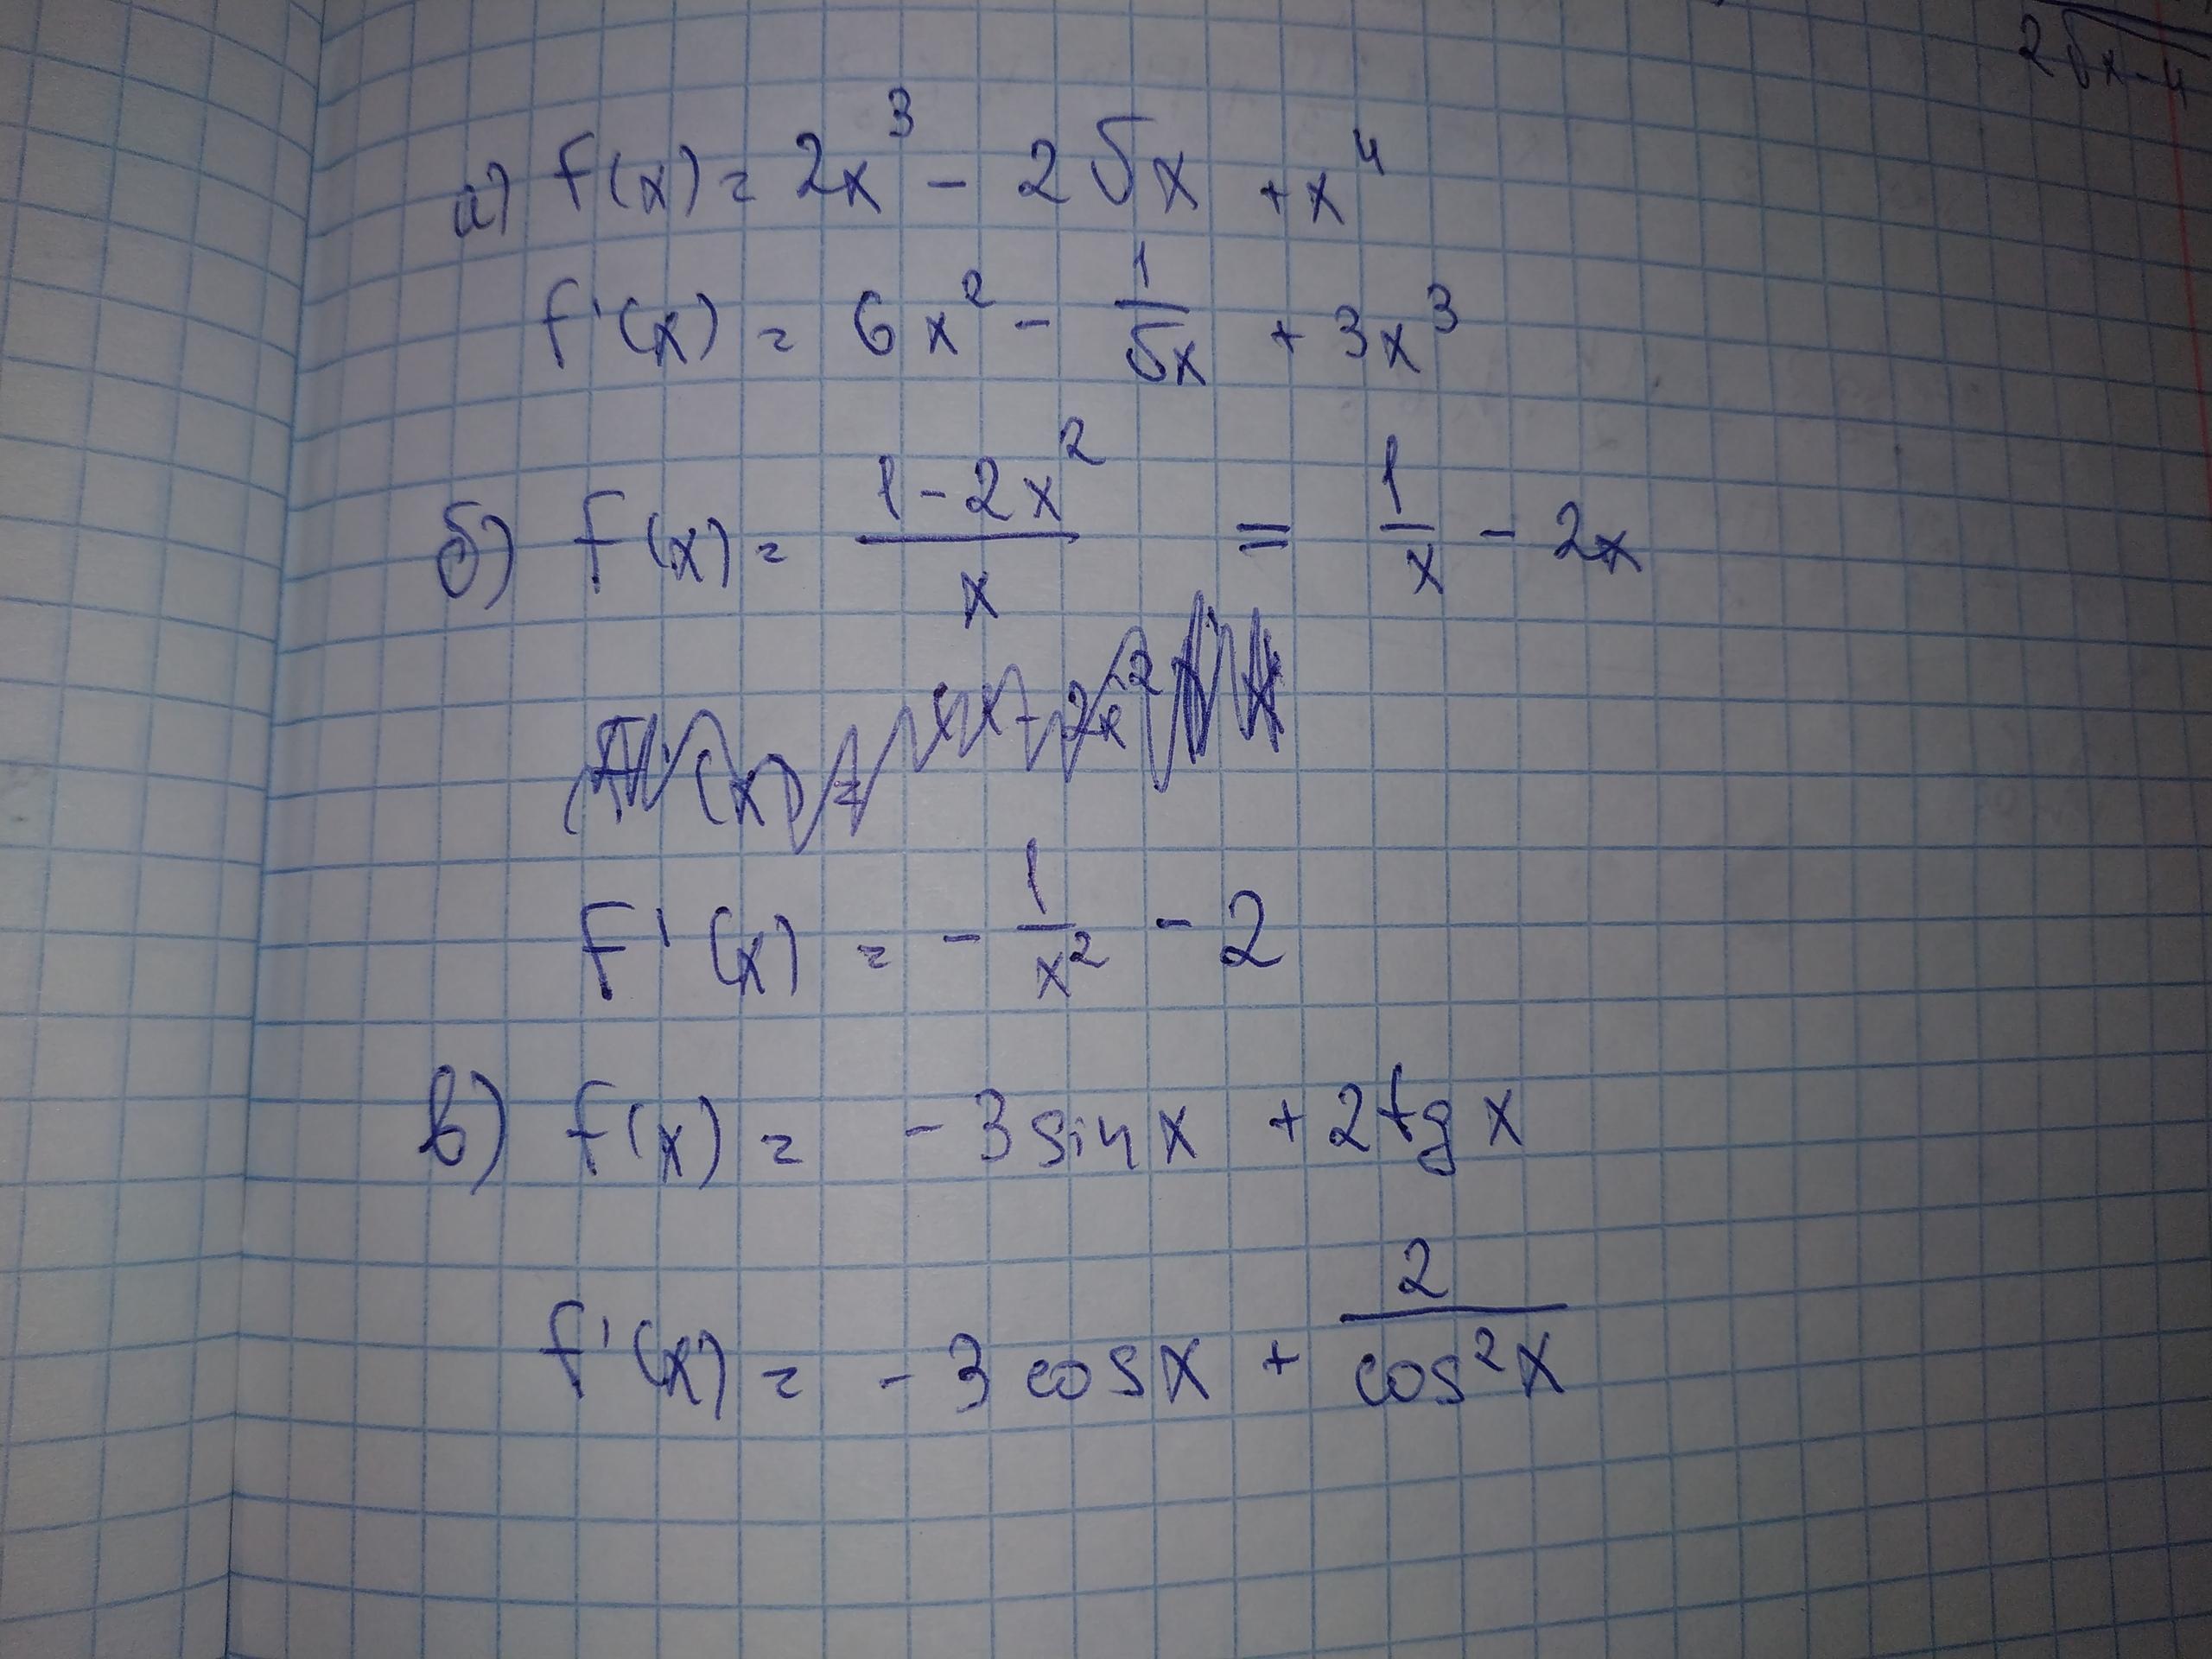 2√x-4
а) f(x) = 2x³ - 2√x + x⁴
f'(x) = 6x² - 1/√x + 3x³
б) f(x) = (1-2x²)/x = 1/x - 2x
f'(x) = - 1/x² - 2
в) f(x) = -3 sin x + 2 tg x
f'(x) = -3 cos x + 2/cos²x